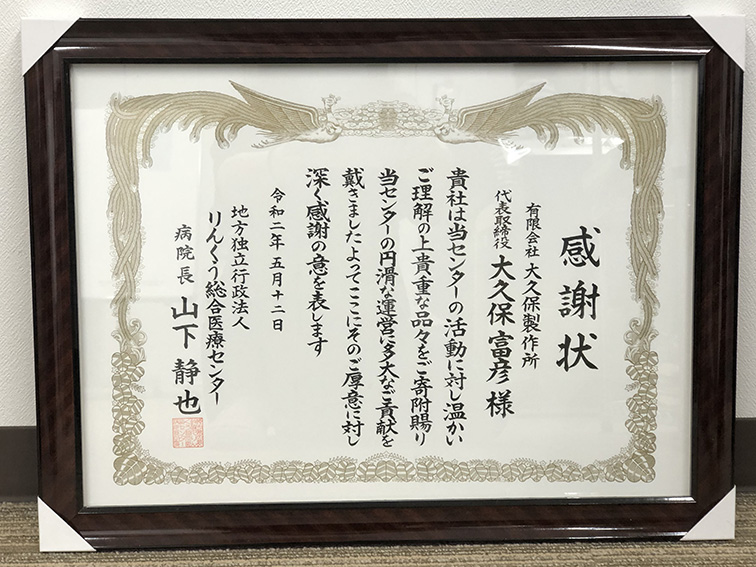 感謝状
有限会社 大久保製作所
代表取締役 大久保富彦 様
貴社は当センターの活動に対し温かい
ご理解の上貴重な品々をご寄附賜り
当センターの円滑な運営に多大なご貢献を
戴きましたよってここにそのご厚意に対し
深く感謝の意を表します
令和二年五月十二日
地方独立行政法人
りんくう総合医療センター
病院長 山下静也